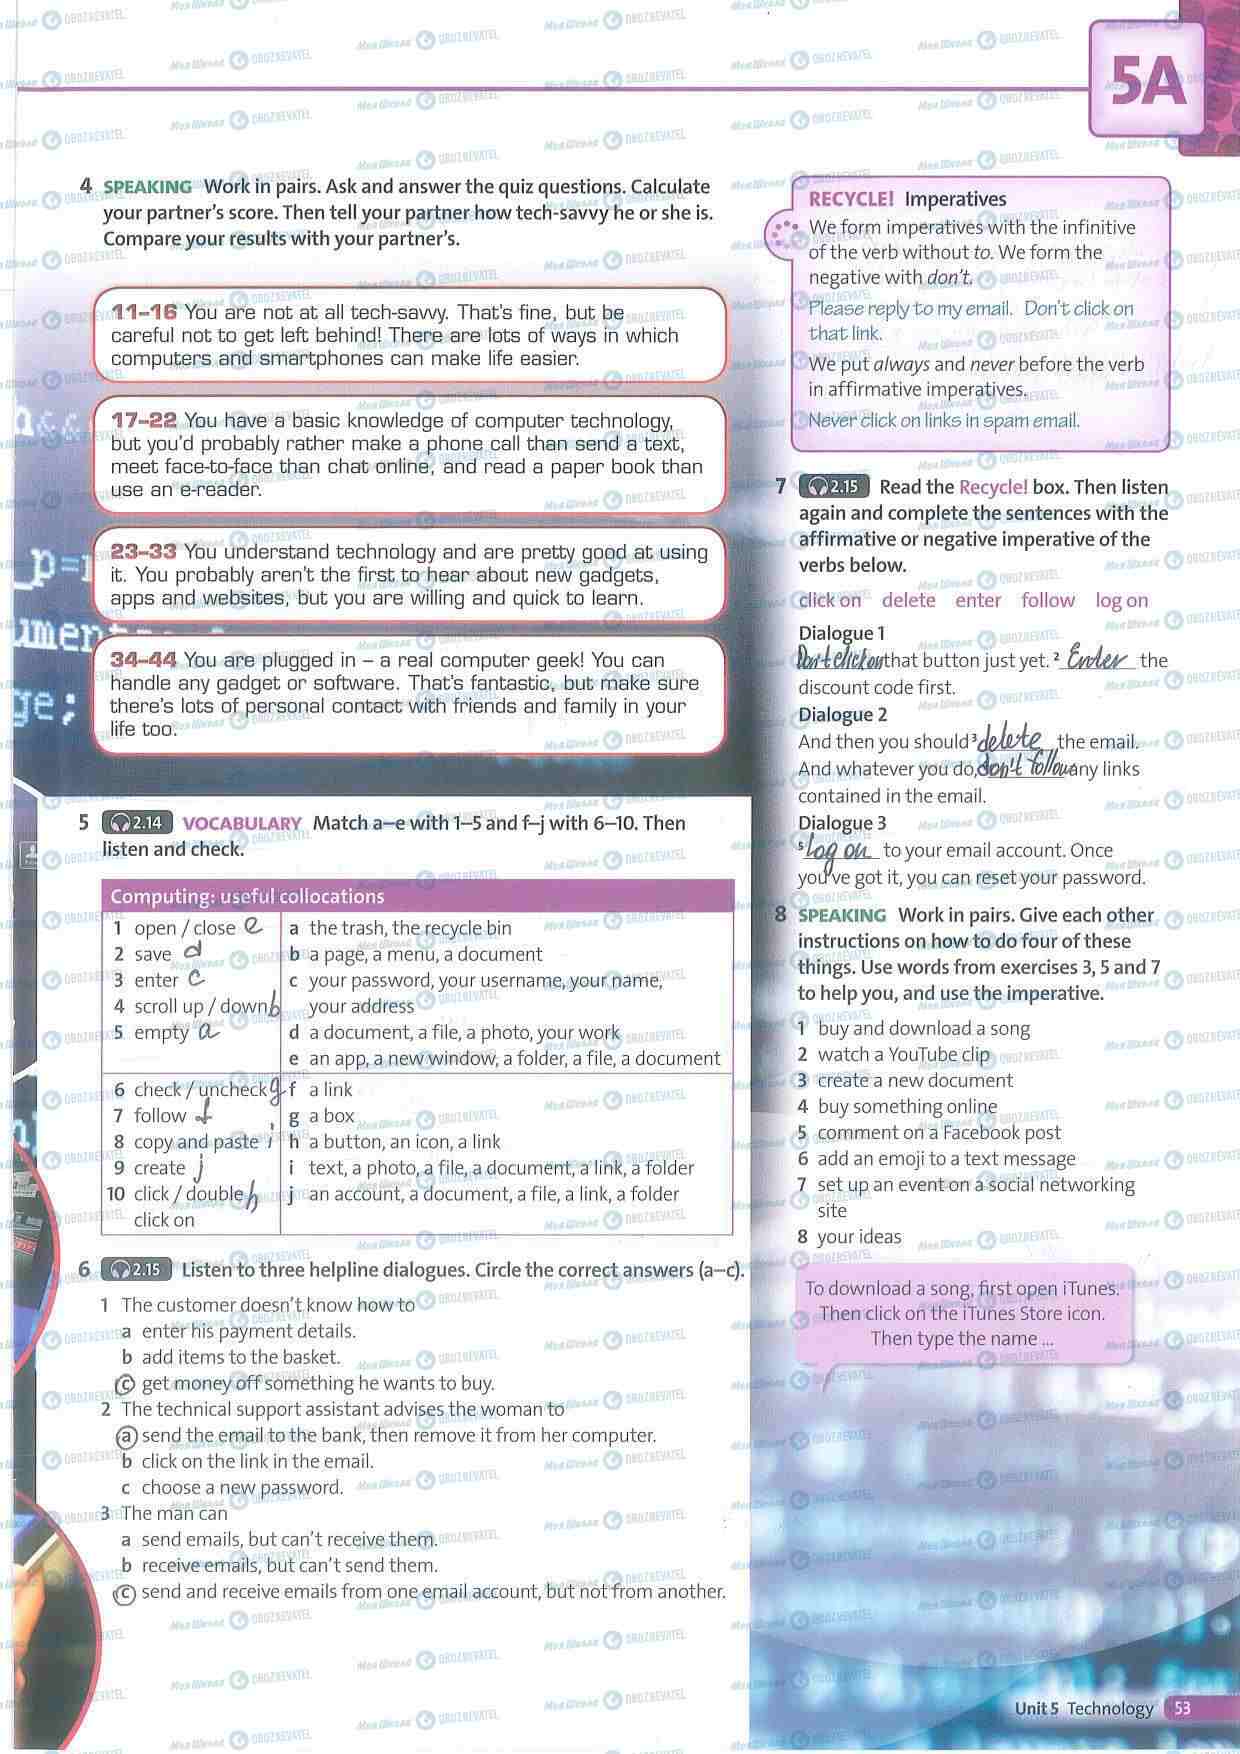 5A
4 SPEAKING Work in pairs. Ask and answer the quiz questions. Calculate
your partner's score. Then tell your partner how tech-savvy he or she is.
Compare your results with your partner's.
11–16 You are not at all tech-savvy. That's fine, but be
careful not to get left behind! There are lots of ways in which
computers and smartphones can make life easier.
17–22 You have a basic knowledge of computer technology,
but you'd probably rather make a phone call than send a text,
meet face-to-face than chat online, and read a paper book than
use an e-reader.
23–33 You understand technology and are pretty good at using
it. You probably aren't the first to hear about new gadgets,
apps and websites, but you are willing and quick to learn.
34–44 You are plugged in – a real computer geek! You can
handle any gadget or software. That's fantastic, but make sure
there's lots of personal contact with friends and family in your
life too.
5 2.14 VOCABULARY Match a–e with 1–5 and f–j with 6–10. Then
listen and check.
Computing: useful collocations
1 open / close e
2 save d
3 enter c
4 scroll up / down b
5 empty a
a the trash, the recycle bin
b a page, a menu, a document
c your password, your username, your name,
your address
d a document, a file, a photo, your work
e an app, a new window, a folder, a file, a document
6 check / uncheck g
7 follow f
8 copy and paste i
9 create j
10 click / double h
click on
f a link
g a box
h a button, an icon, a link
i text, a photo, a file, a document, a link, a folder
j an account, a document, a file, a link, a folder
6 2.15 Listen to three helpline dialogues. Circle the correct answers (a–c).
1 The customer doesn't know how to
a enter his payment details.
b add items to the basket.
c get money off something he wants to buy.
2 The technical support assistant advises the woman to
a send the email to the bank, then remove it from her computer.
b click on the link in the email.
c choose a new password.
3 The man can
a send emails, but can't receive them.
b receive emails, but can't send them.
c send and receive emails from one email account, but not from another.
RECYCLE! Imperatives
We form imperatives with the infinitive
of the verb without to. We form the
negative with don't.
Please reply to my email. Don't click on
that link.
We put always and never before the verb
in affirmative imperatives.
Never click on links in spam email.
7 2.15 Read the Recycle! box. Then listen
again and complete the sentences with the
affirmative or negative imperative of the
verbs below.
click on delete enter follow log on
Dialogue 1
Don't click on that button just yet. 2 Enter the
discount code first.
Dialogue 2
And then you should 3 delete the email.
And whatever you do, don't follow any links
contained in the email.
Dialogue 3
5 log on to your email account. Once
you've got it, you can reset your password.
8 SPEAKING Work in pairs. Give each other
instructions on how to do four of these
things. Use words from exercises 3, 5 and 7
to help you, and use the imperative.
1 buy and download a song
2 watch a YouTube clip
3 create a new document
4 buy something online
5 comment on a Facebook post
6 add an emoji to a text message
7 set up an event on a social networking
site
8 your ideas
To download a song, first open iTunes.
Then click on the iTunes Store icon.
Then type the name ...
Unit 5 Technology 53